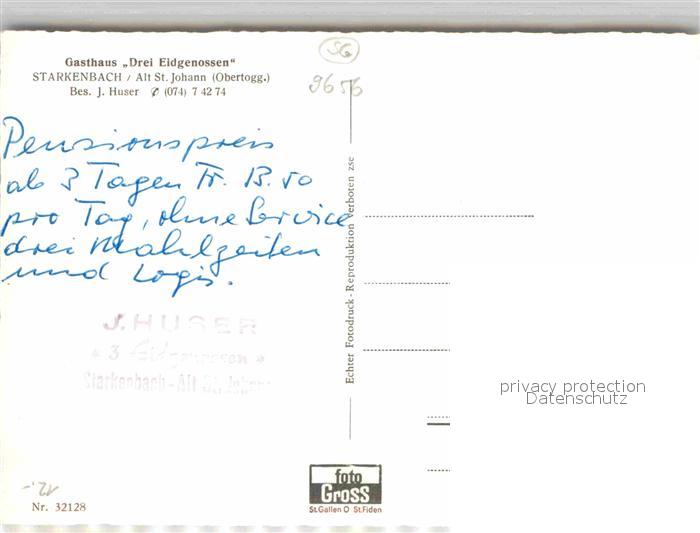 Gasthaus „Drei Eidgenossen"
STARKENBACH / Alt St. Johann (Obertogg.)
Bes. J. Huser ✆ (074) 7 42 74
SG
9656
Pensionspreis
ab 3 Tagen Fr. 13.50
pro Tag, ohne Service
drei Mahlzeiten
und Logis.
J. HUSER
« 3 Eidgenossen »
Starkenbach - Alt St. Johann
Echter Fotodruck - Reproduktion verboten zse
privacy protection
Datenschutz
12.-
Nr. 32128
foto
GROSS
St.Gallen O St.Fiden